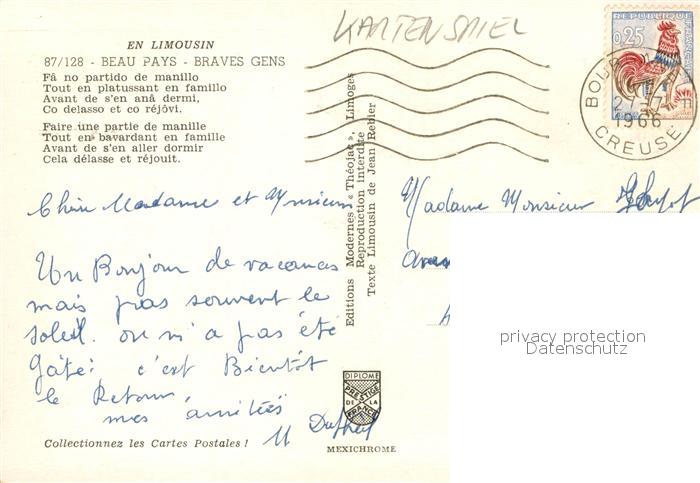 KARTENSPIEL
EN LIMOUSIN
87/128 - BEAU PAYS - BRAVES GENS
Fâ no partido de manillo
Tout en platussant en famillo
Avant de s'en anâ dermi,
Co delasso et co réjôvi.
Faire une partie de manille
Tout en bavardant en famille
Avant de s'en aller dormir
Cela délasse et réjouit.
REPUBLIQUE FRANÇAISE
0,25
BOU
1966
CREUSE
Chère Madame et Monsieur
Un Bonjour de vacances
mais pas souvent le
soleil. on n'a pas été
Gâté; c'est Bientôt
le Retour,
mes amitiés
Editions Modernes « Théojac », Limoges
Reproduction interdite
Texte Limousin de Jean Rebier
Madame Monsieur
privacy protection
Datenschutz
DIPLOME
PRESTIGE
DE LA
FRANCE
MEXICHROME
Collectionnez les Cartes Postales !